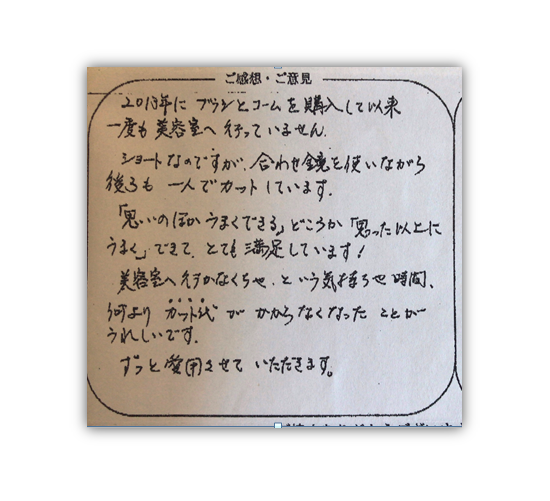 ご感想・ご意見
2018年に ブラシとコームを購入して以来
一度も美容室へ行っていません。
ショートなのですが、合わせ鏡を使いながら
後ろも 一人でカットしています。
「思いのほかうまくできる」どころか「思った以上に
うまく」できて、とても満足しています!
美容室へ行かなくちゃ、という気持ちや時間、
何より カット代 が かからなくなった ことが
うれしいです。
ずっと愛用させて いただきます。